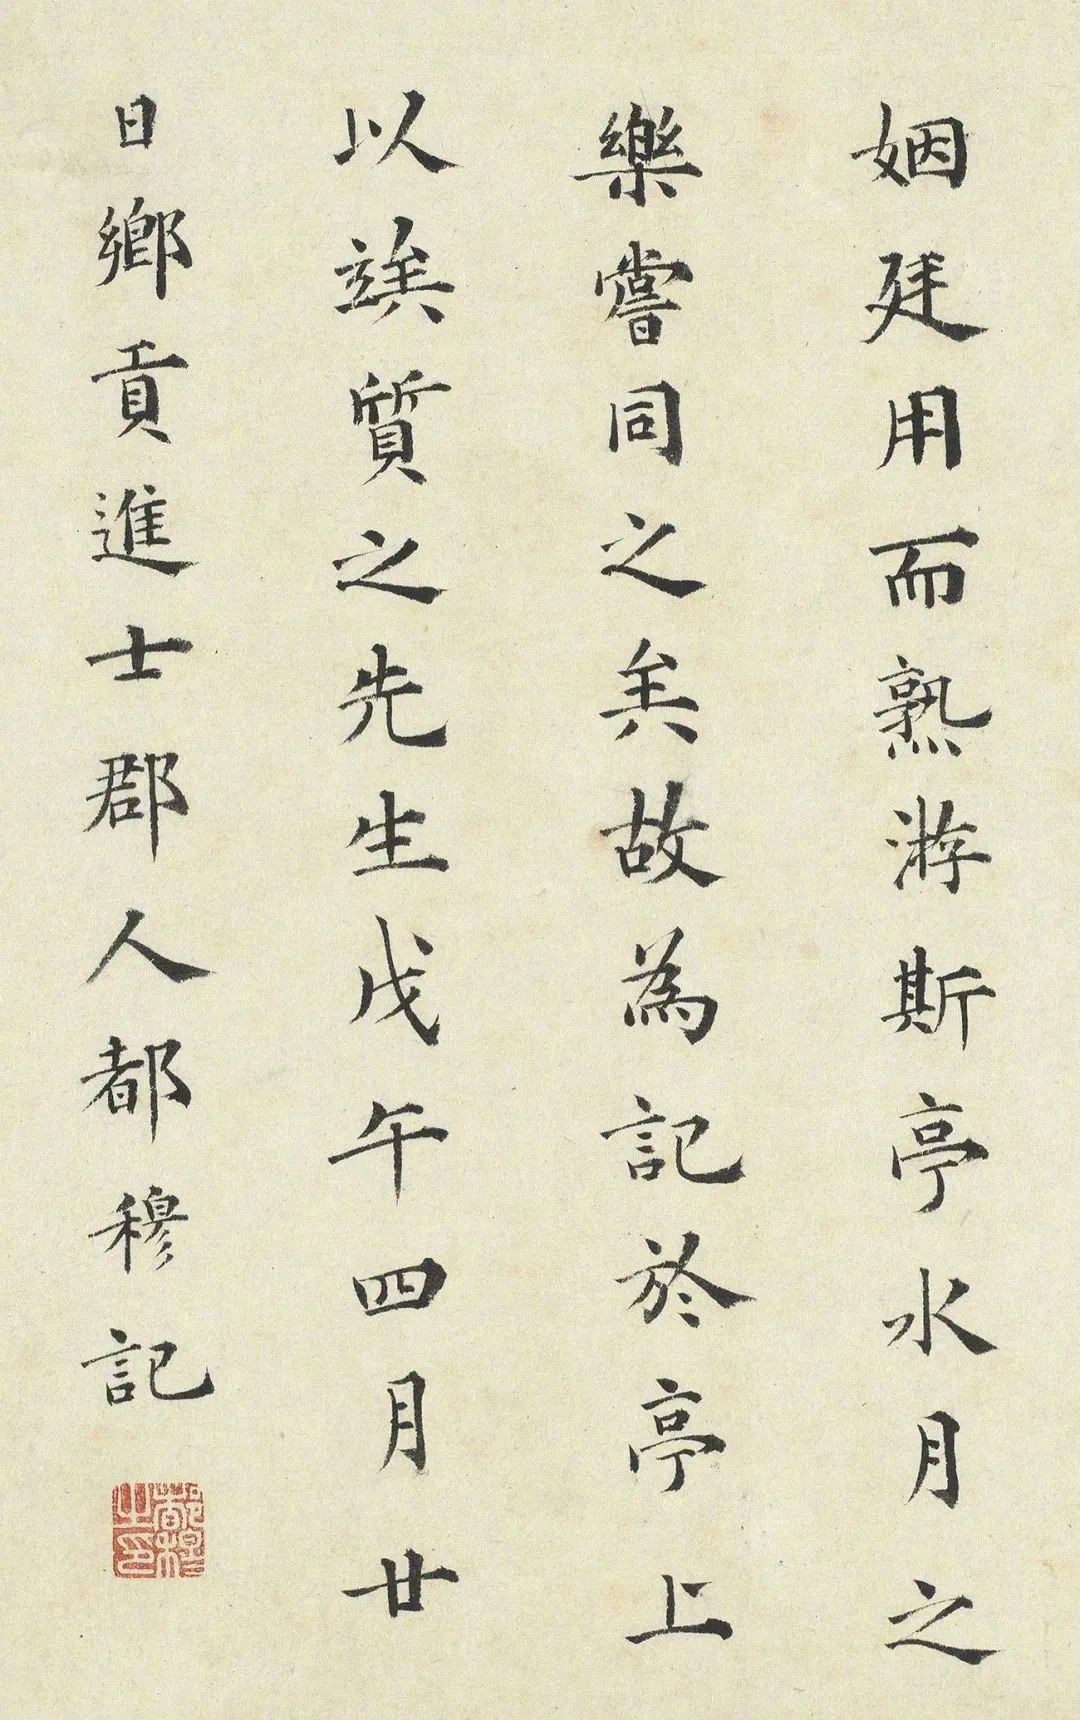 姻廷用而熟游斯亭水月之
樂嘗同之矣故為記於亭上
以竢質之先生戊午四月廿
日鄉貢進士郡人都穆記
都穆之印